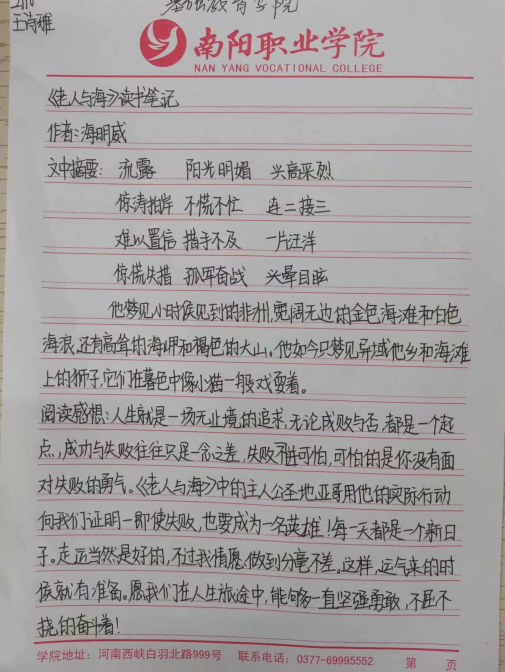 王诗雅
教育学院
南阳职业学院
NAN YANG VOCATIONAL COLLEGE
《老人与海》读书笔记
作者:海明威
文中摘要: 流露 阳光明媚 兴高采烈
惊涛拍岸 不慌不忙 连二接三
难以置信 措手不及 一片汪洋
惊慌失措 孤军奋战 头晕目眩
他梦见小时侯见到的非洲,宽阔无边的金色海滩和白色
海浪,还有高耸的海岬和褐色的大山。他如今只梦见异域他乡和海滩
上的狮子,它们在暮色中像小猫一般戏耍着。
阅读感想:人生就是一场无止境的追求,无论成败与否,都是一个起
点,成功与失败往往只是一念之差,失败不可怕,可怕的是你没有面
对失败的勇气。《老人与海》中的主人公圣地亚哥用他的实际行动
向我们证明一即使失败,也要成为一名英雄!每一天都是一个新日
子。走运当然是好的,不过我情愿做到分毫不差。这样,运气来的时
侯就有准备。愿我们在人生旅途中,能够一直坚强勇敢,不屈不
挠的奋斗着!
学院地址:河南西峡白羽北路999号 联系电话:0377-69995552 第 页